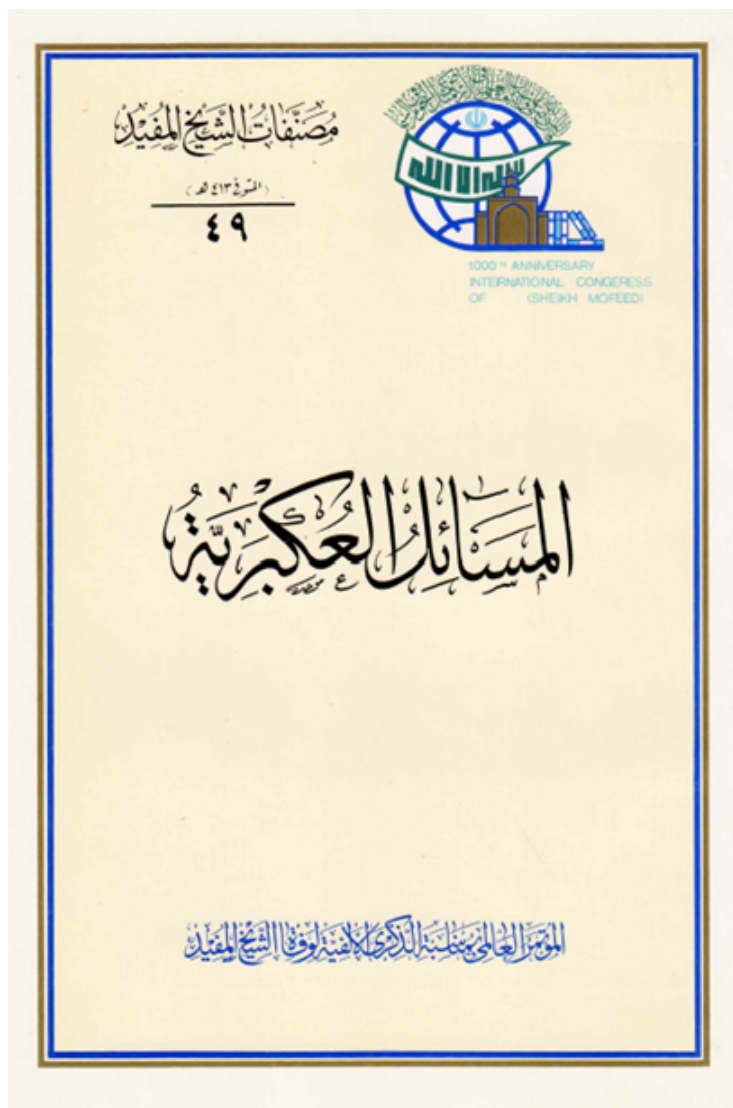 مُصَنَّفَاتُ الشَّيْخِ المُفِيْدِ
(المتوفى ٤١٣ هـ)
٤٩
لا إله إلا الله
1000 TH ANNIVERSARY
INTEIRNATIONAL CONGERESS
OF (SHEIKH MOFEED)
المَسَائِلُ العُكْبَرِيَّةُ
المؤتمر العالمي بمناسبة الذكرى الألفية لوفاة الشيخ المفيد